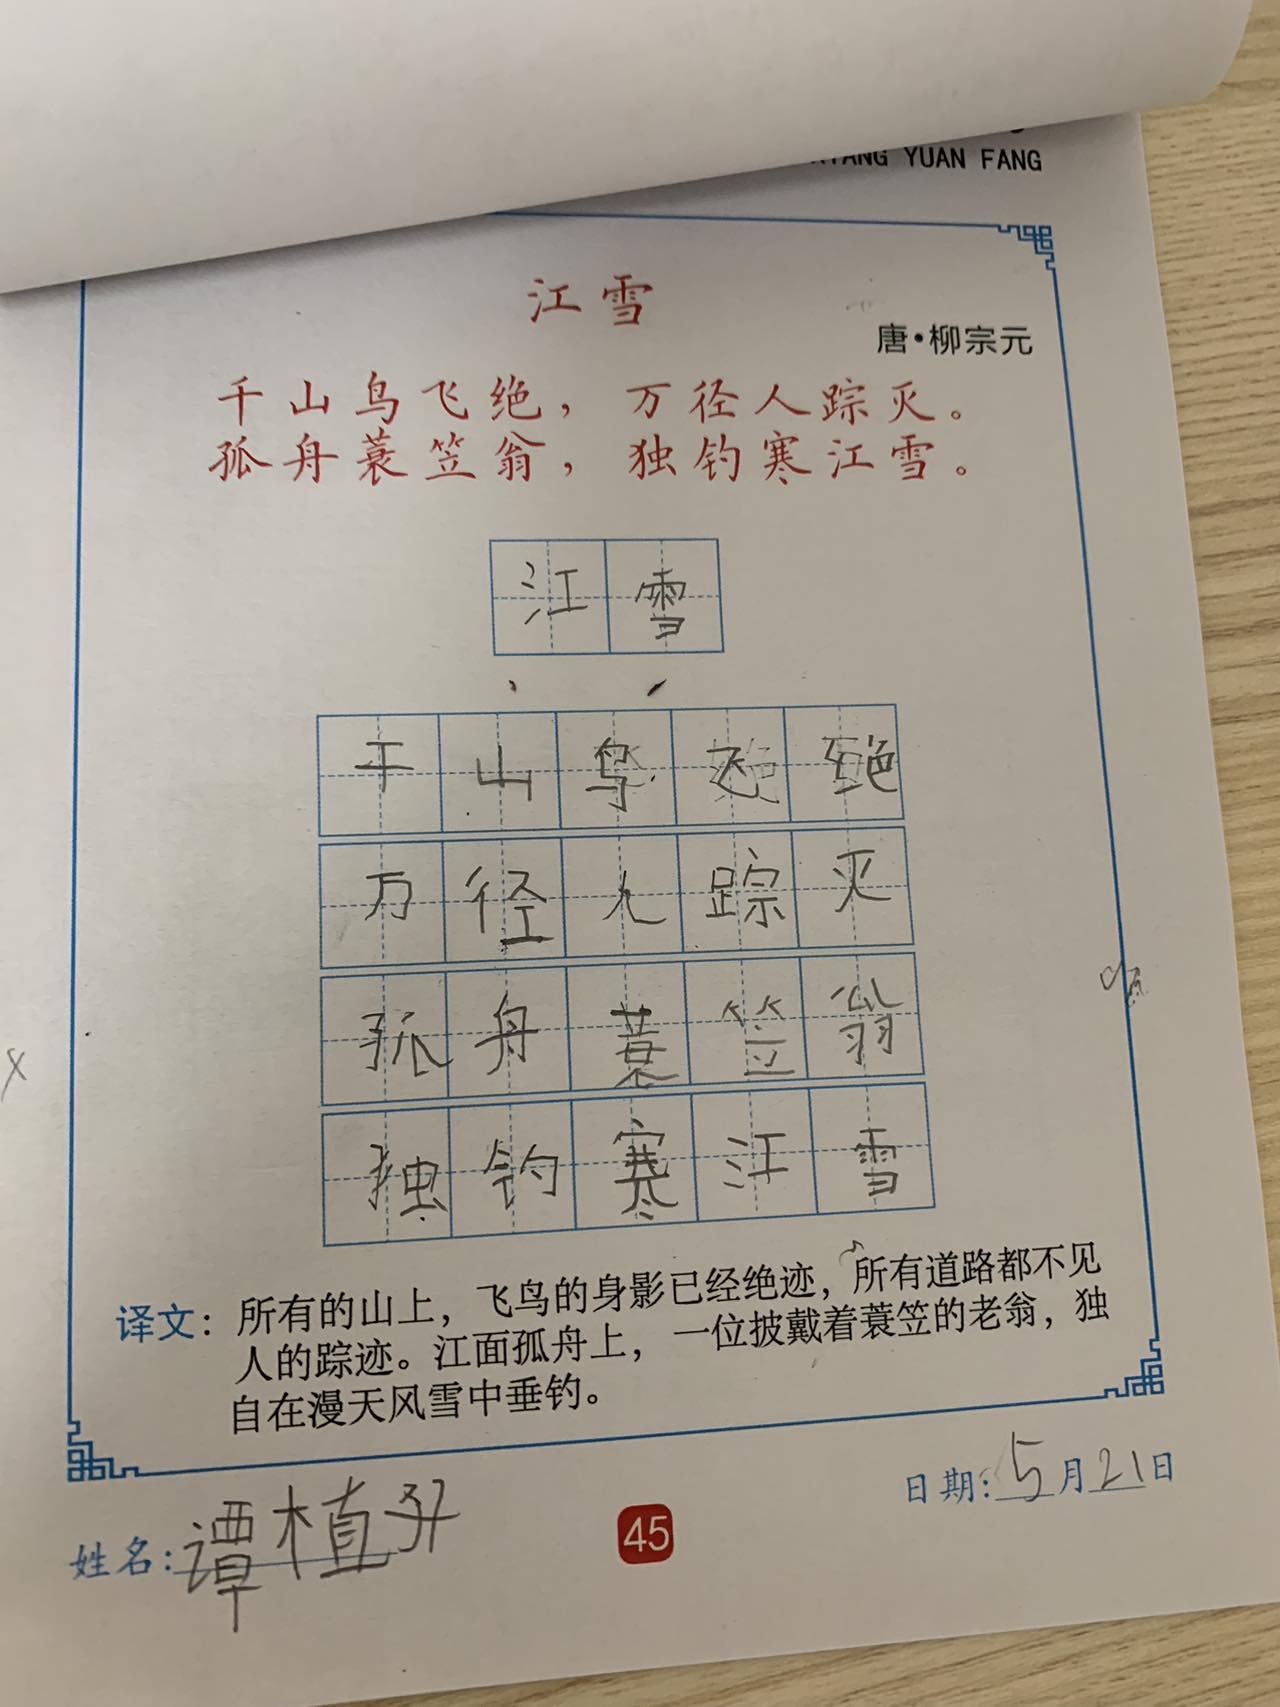 YUAN FANG
江雪
唐·柳宗元
千山鸟飞绝，万径人踪灭。
孤舟蓑笠翁，独钓寒江雪。
江雪
千山鸟飞绝
万径人踪灭
孤舟蓑笠翁
独钓寒江雪
译文：所有的山上，飞鸟的身影已经绝迹，所有道路都不见
人的踪迹。江面孤舟上，一位披戴着蓑笠的老翁，独
自在漫天风雪中垂钓。
日期：5月21日
姓名：谭植
45